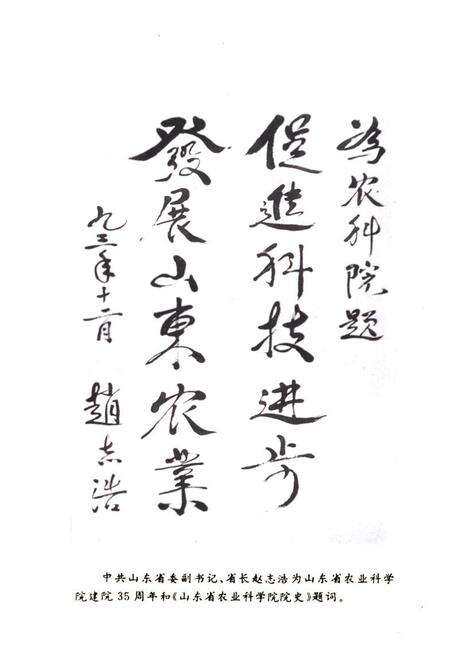 为农科院题
促進科技进步
發展山東农業
九三年十二月
趙志浩
中共山东省委副书记、省长赵志浩为山东省农业科学
院建院35周年和《山东省农业科学院院史》题词。